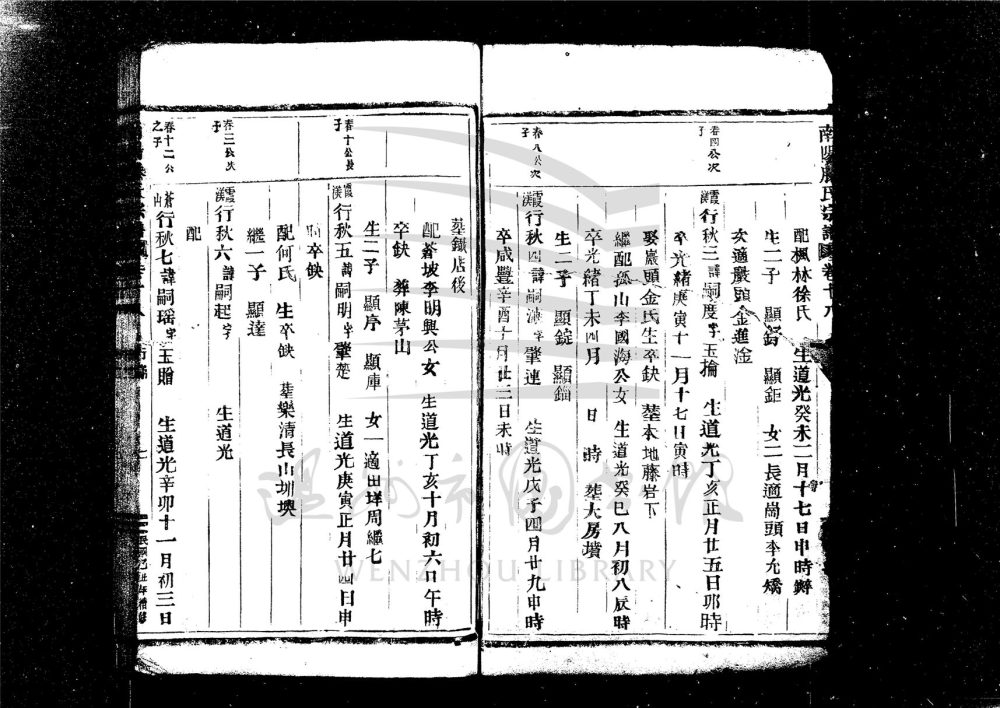 配楓林徐氏　生道光癸未二月十七日申時辭
生二子　顯　顯鉅　女二長適崗頭李允矯
女適嚴頭金進淦
春四公次子
霞漢行秋三諱嗣度字玉掄　生道光丁亥正月廿五日卯時
卒光緒庚寅十一月十七日寅時
娶嚴頭金氏生卒缺　塟本地藤岩下
繼配孤山李國海公女　生道光癸巳八月初八辰時
卒光緒丁未四月　日　時　塟大房墳
生二子　顯錠　顯錙
春八公次子
霞漢行秋四諱嗣　字肇連　生道光戊子四月廿九申時
卒咸豐辛酉十月廿三日未時
塟鐵店後
配蒼坡李明興公女　生道光丁亥十月初六日午時
卒缺　葬陳茅山
生二子　顯序　顯庫　女一適田垟周繼七
春十公長子
霞漢行秋五諱嗣明字肇楚　生道光庚寅正月廿四日申
時卒缺
配何氏　生卒缺　塟樂清長山圳堧
繼一子　顯達
春三公次子
霞漢行秋六諱嗣起字　生道光
配
春十二公之子
蒼山行秋七諱嗣瑶字玉贈　生道光辛卯十一月初三日
WENZHOU LIBRARY